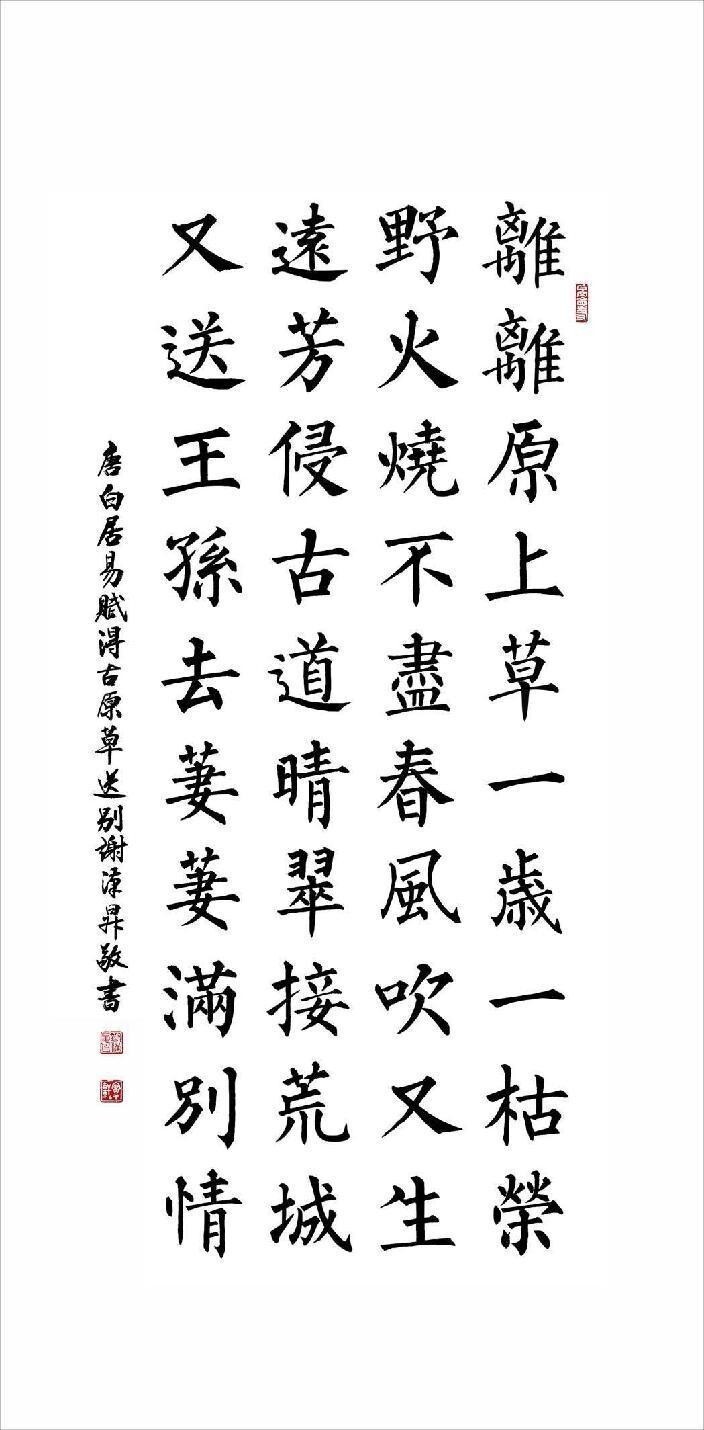 離離原上草一歲一枯榮
野火燒不盡春風吹又生
遠芳侵古道晴翠接荒城
又送王孫去萋萋滿別情
唐白居易賦得古原草送別謝
昇敬書